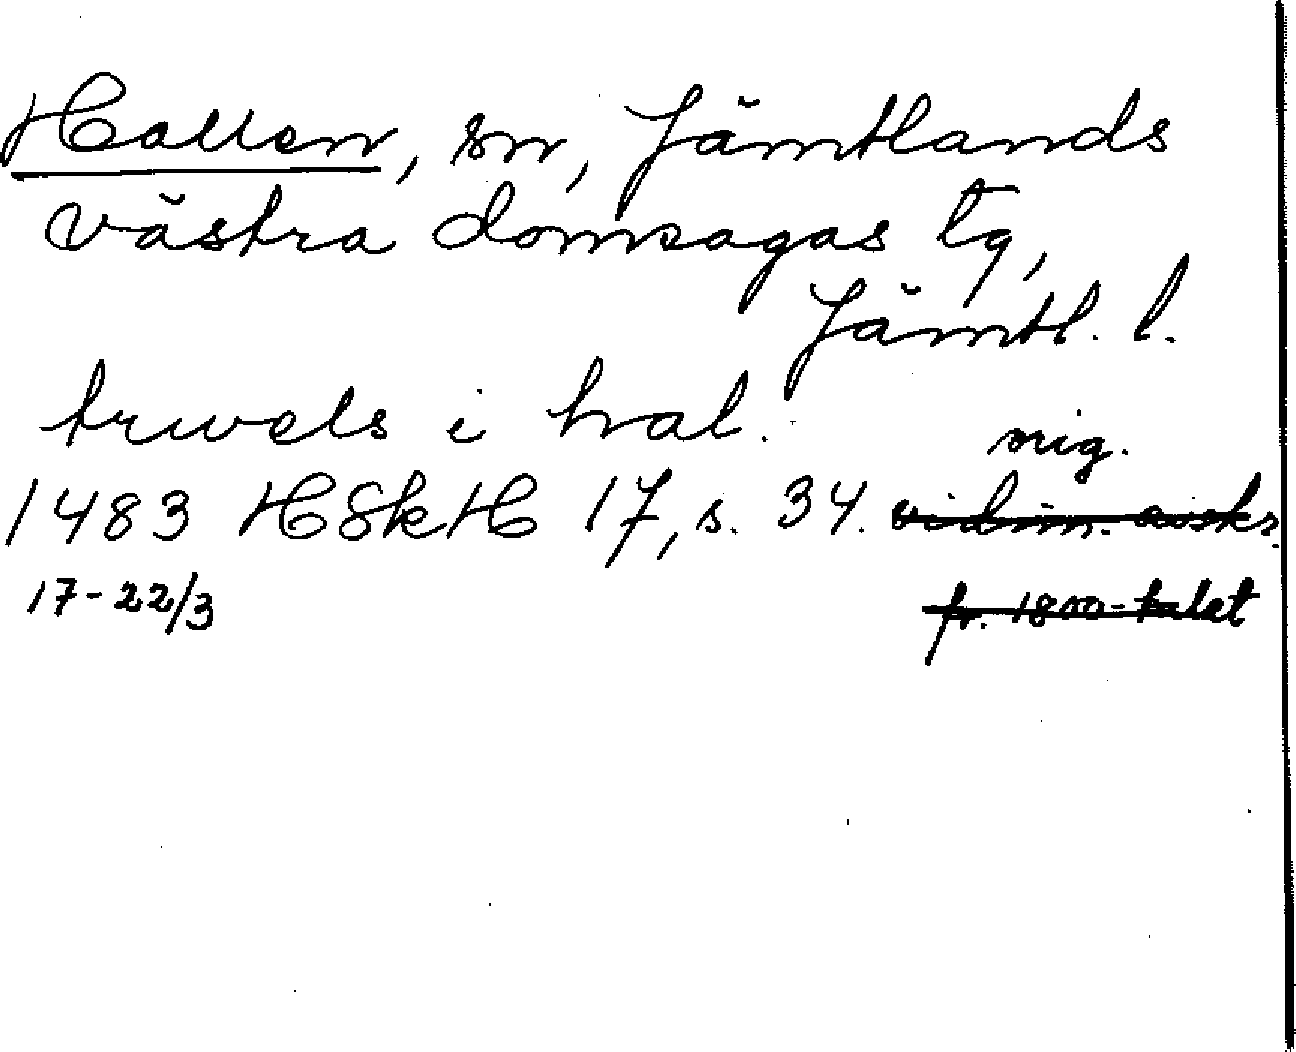 Hallen, sn, Jämtlands
västra domsagas tg,
Jämtl. l.
truvels i hal.
orig.
1483 HSkH 17, s. 34. vidim. avskr.
17-22/3
fr. 1800-talet